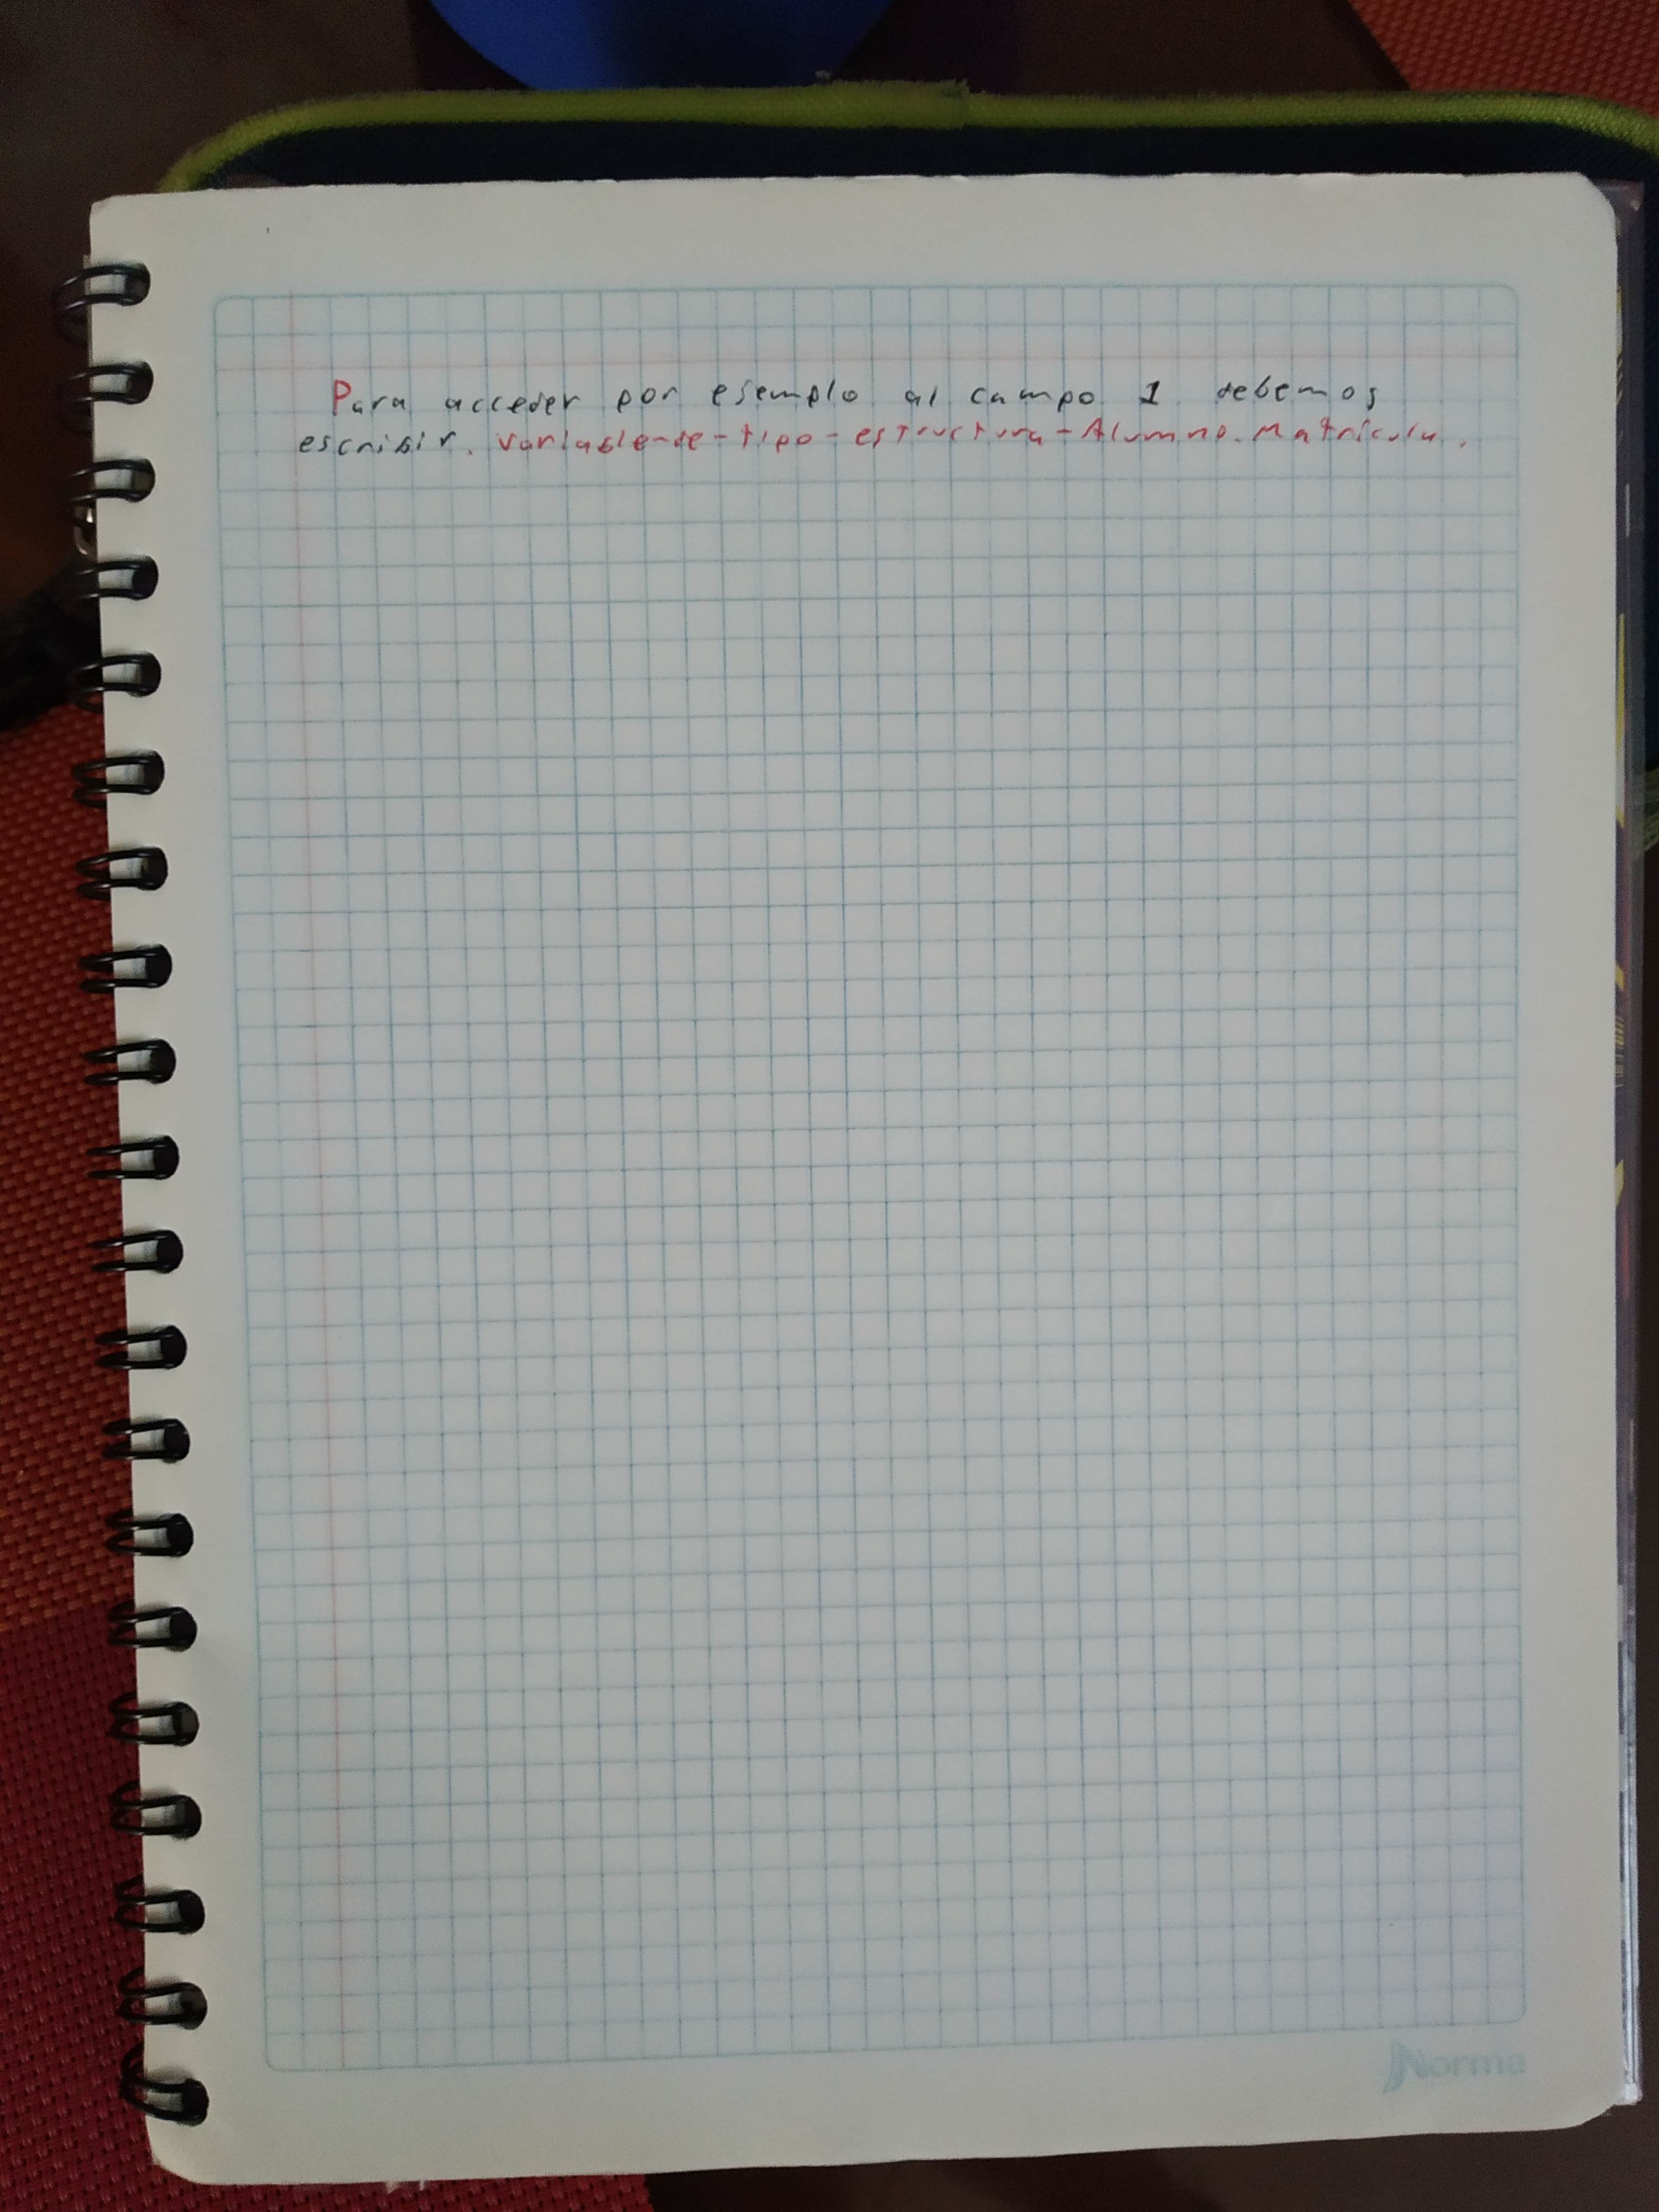 Para acceder por ejemplo al campo 1 debemos
escribir. variable-de-tipo-estructura-Alumno.Matricula.
Norma